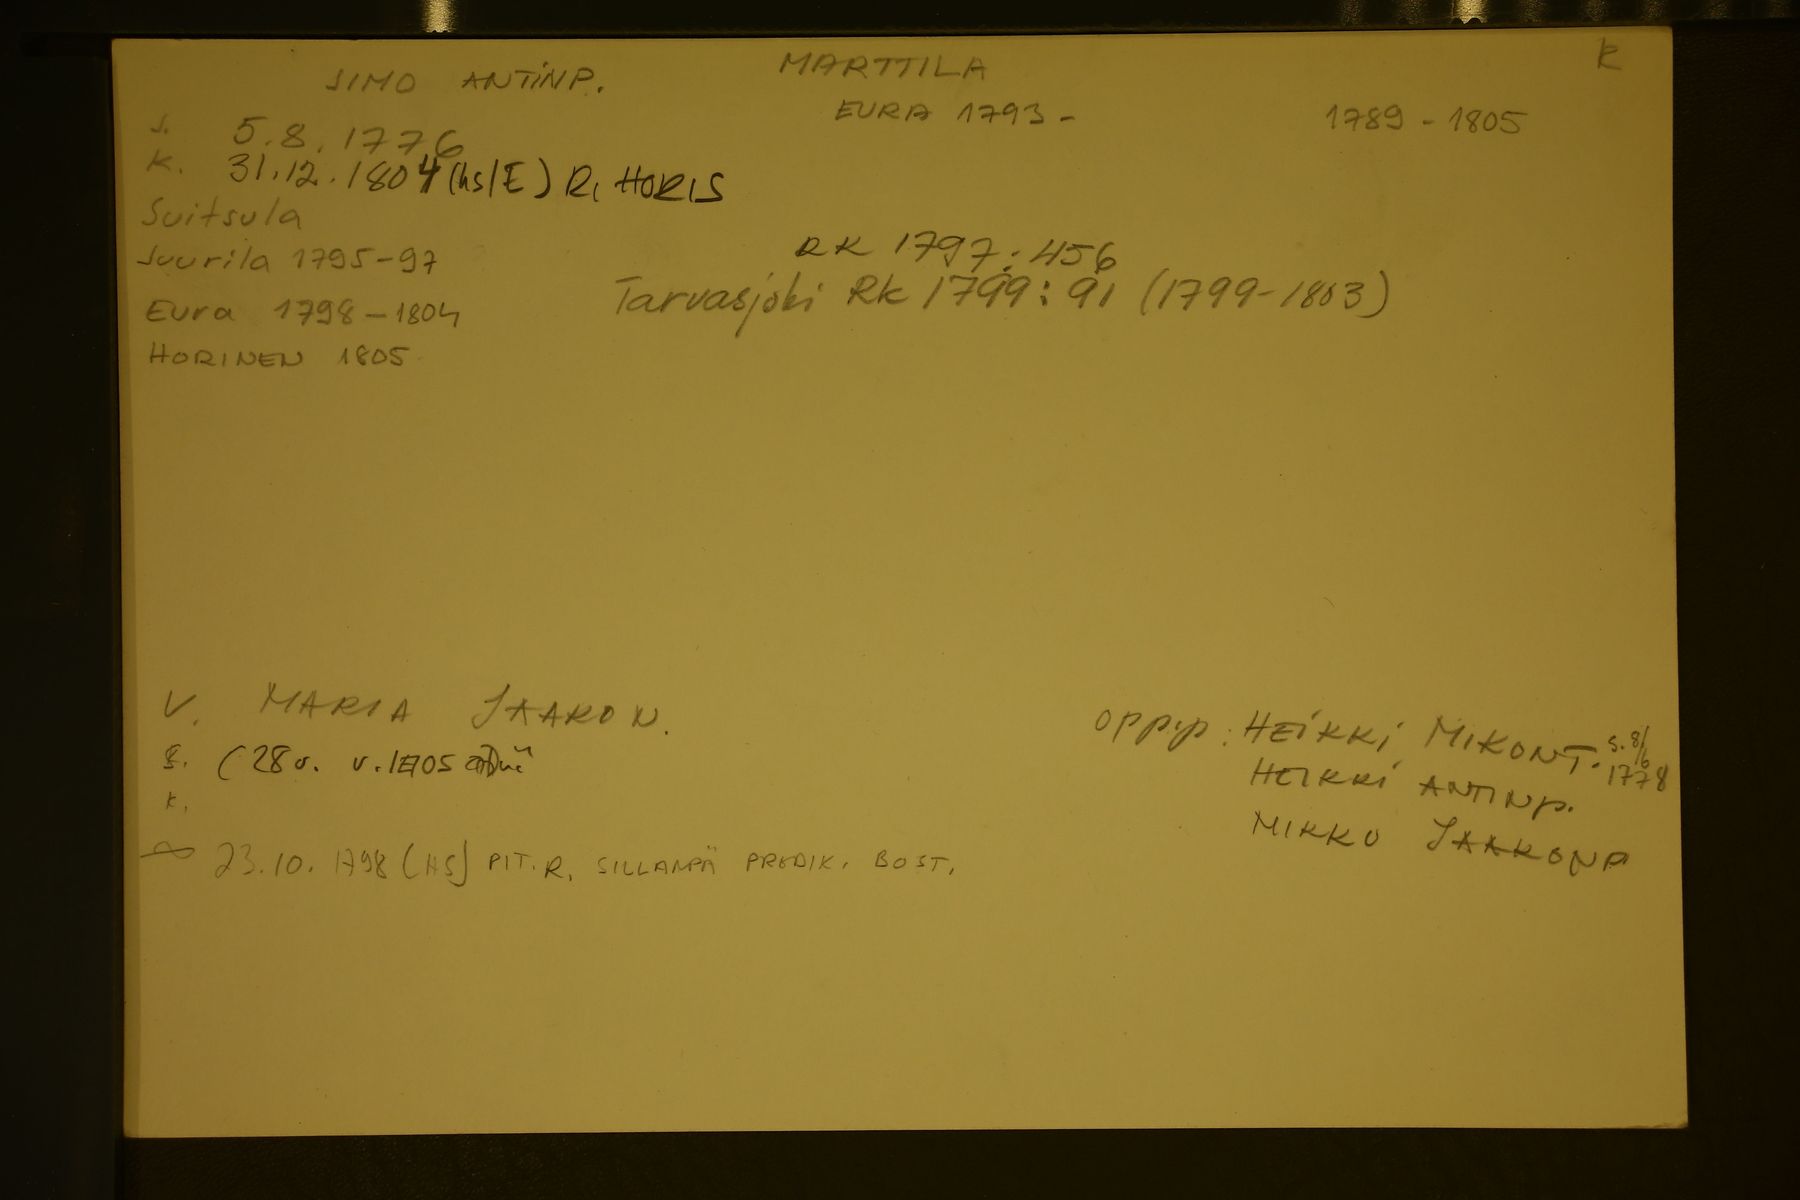 K
SIMO ANTINP. MARTTILA
EURA 1793 - 1789 - 1805
s. 5.8.1776
k. 31.12.1804 (hs/E) R. HORIS
Suitsula
Juurila 1795-97 RK 1797:456
Eura 1798-1804 Tarvasjoki RK 1799:91 (1799-1803)
HORINEN 1805
V. MARIA JAAKON. oppip: HEIKKI MIKONT. s. 8/6 1778
s. (28 v. v. 1805 HEIKKI ANTINP.
k. MIKKO JAAKONP
∞ 23.10.1798 (HS) PIT. R. SILLANPÄ PREDIK. BOST.